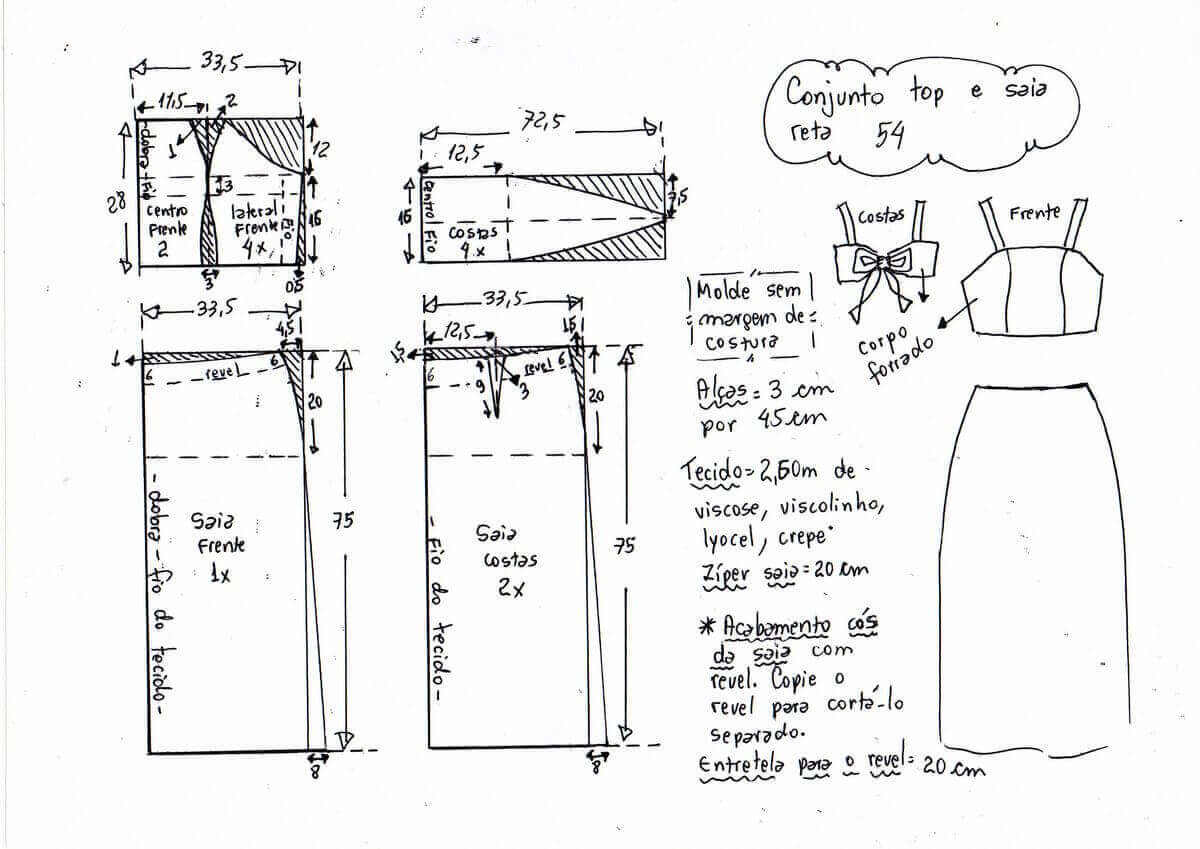 Conjunto top e saia
reta 54
33,5
11,5
2
1
12
28
3
15
dobra - fio
centro
frente
2
lateral
frente
4x
fio
3
0,5
72,5
12,5
7,5
15
centro
fio
costas
4x
Costas
Frente
corpo
forrado
Molde sem
margem de
costura
Alças = 3 cm
por 45 cm
Tecido = 2,50m de
viscose, viscolinho,
lyocel, crepe
Zíper saia = 20 cm
* Acabamento cós
da saia com
revel. Copie o
revel para cortá-lo
separado.
Entretela para o revel = 20 cm
33,5
4,5
1
6
revel
6
20
75
- dobra - fio do tecido -
Saia
Frente
1x
8
33,5
12,5
6
9
3
revel
6
20
75
- fio do tecido -
Saia
costas
2x
8